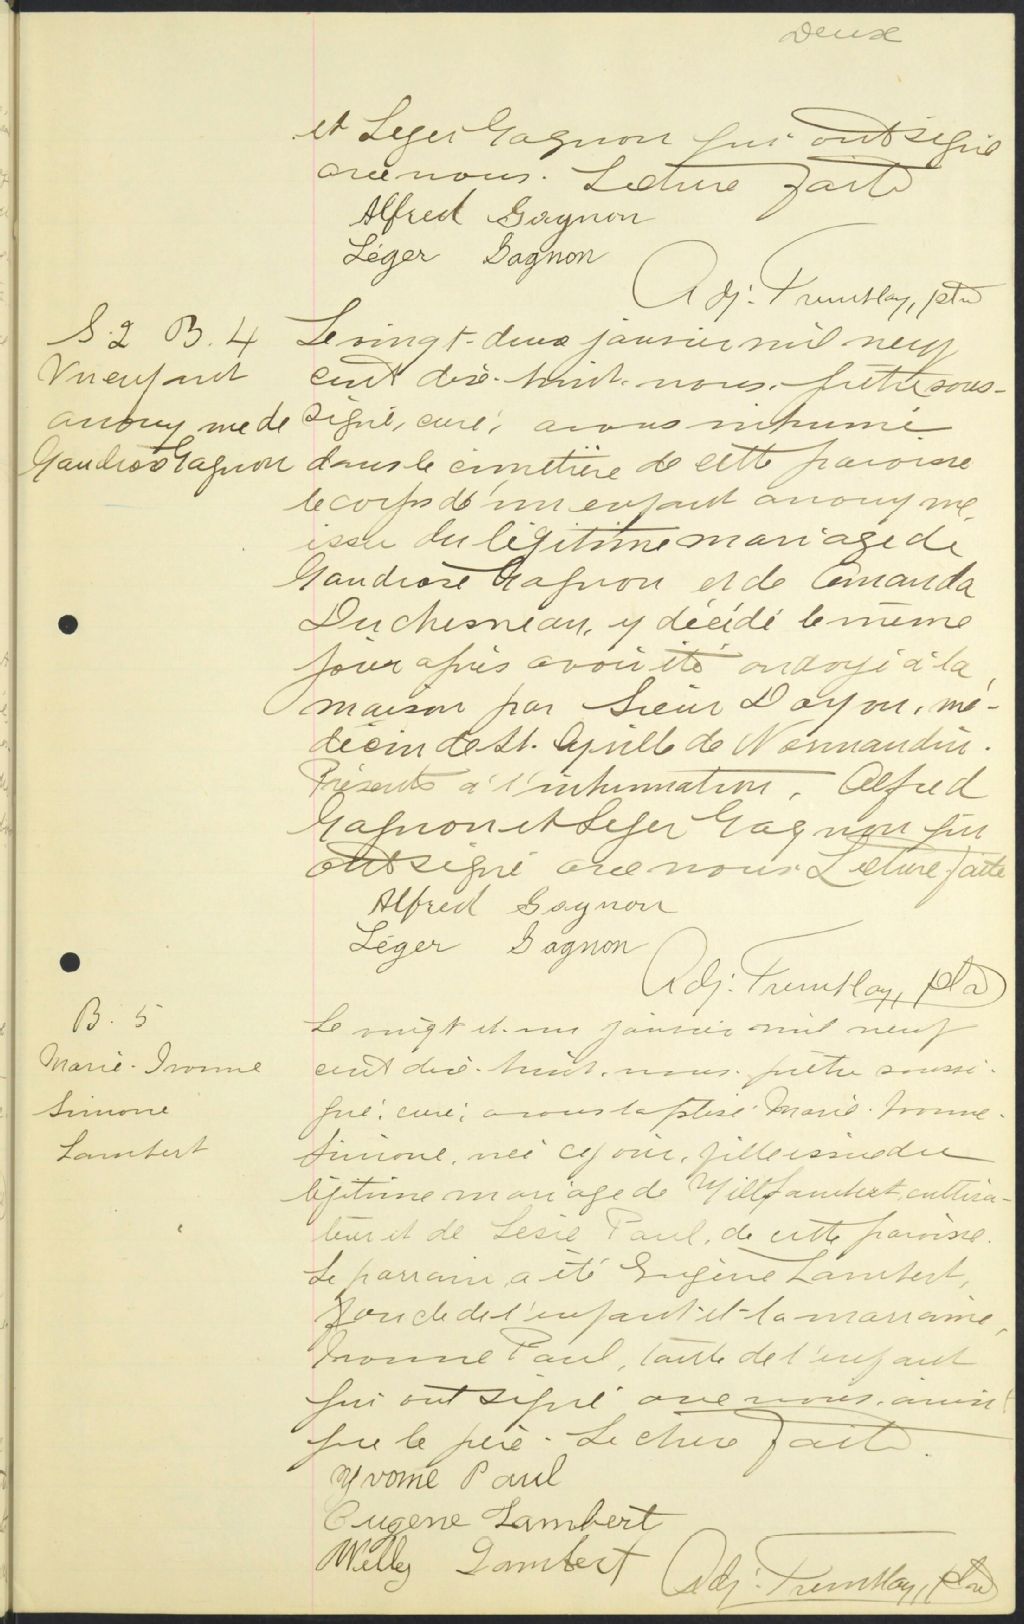 Deux
et Leger Gagnon qui ont signé
avec nous. Lecture faite
Alfred Gagnon
Léger Gagnon
Adj. Tremblay, ptre
S. 2 B. 4
Un enfant
anonyme de
Gaudiose Gagnon
Le vingt-deux janvier mil neuf
cent dix-huit, nous, prêtre sous-
signé, curé, avons inhumé
dans le cimetière de cette paroisse
le corps d'un enfant anonyme,
issu du légitime mariage de
Gaudiose Gagnon et de Emanda
Duchesneau, y décédé le même
jour après avoir été ondoyé à la
maison par Sieur Doyon, mé-
decin de St. Cyrille de Normandin.
Présents à l'inhumation, Alfred
Gagnon et Leger Gagnon qui
ont signé avec nous. Lecture faite
Alfred Gagnon
Léger Gagnon
Adj. Tremblay, ptre
B. 5
Marie-Ivonne
Simone
Lambert
Le vingt et un janvier mil neuf
cent dix-huit, nous, prêtre soussi-
gné, curé, avons baptisé Marie-Ivonne-
Simone, née ce jour, fille issue du
légitime mariage de Lambert, cultiva-
teur et de Paul, de cette paroisse.
Le parrain a été Eugène Lambert,
oncle de l'enfant et la marraine,
Ivonne Paul, tante de l'enfant
qui ont signé avec nous, ainsi
que le père. Lecture faite.
Yvonne Paul
Eugene Lambert
Willy Lambert
Adj. Tremblay, ptre